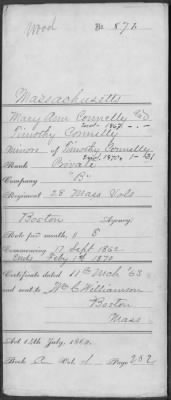 Wood No. 871.
Massachusetts
Mary Ann Connelly
Timothy Connelly
Minor of Timothy Connelly
Rank Private
Company "B"
Regiment 28 Mass Vols
Boston Agency.
Rate per month, $ 8
Commencing 17 Sept 1862
Ends Feby 1st 1870
Certificate dated 11th Mch '65
and sent to Wm C Williamson
Boston
Mass
Act 14th July, 1862.
Book Vol. Page 252